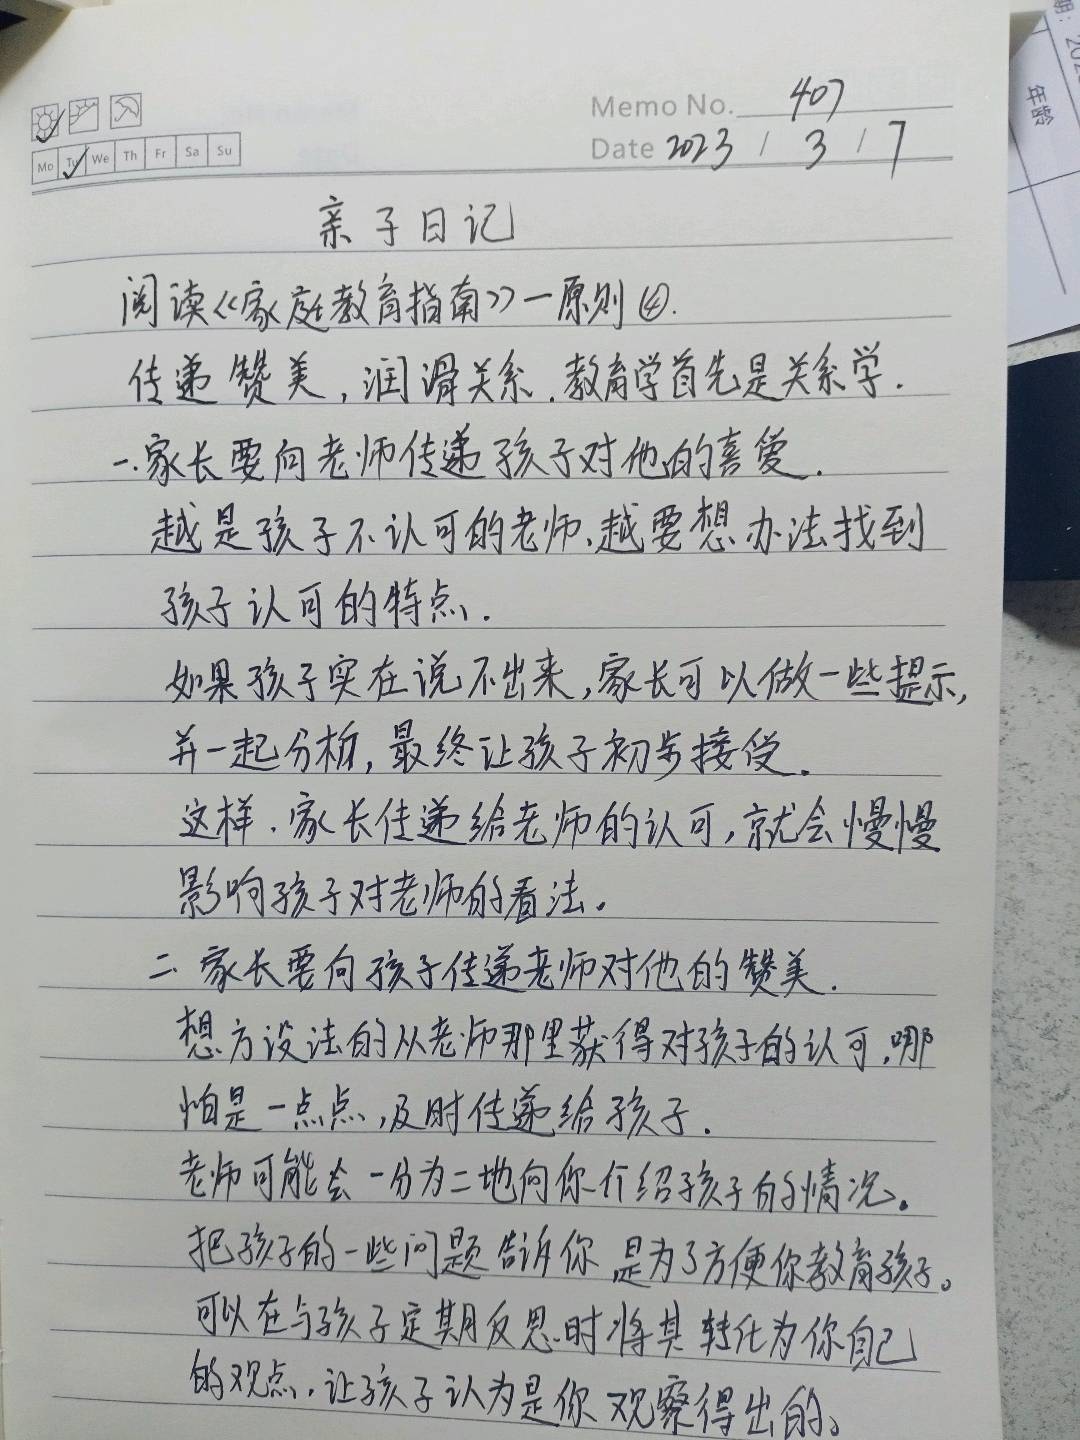 Memo No. 407
Mo Tu We Th Fr Sa Su
Date 2023 / 3 / 7
年龄
亲子日记
阅读《家庭教育指南》一原则④.
传递赞美,润滑关系.教育学首先是关系学.
一.家长要向老师传递孩子对他的喜爱.
越是孩子不认可的老师、越要想办法找到
孩子认可的特点.
如果孩子实在说不出来,家长可以做一些提示,
并一起分析,最终让孩子初步接受.
这样.家长传递给老师的认可,就会慢慢
影响孩子对老师的看法。
二.家长要向孩子传递老师对他的赞美.
想方设法的从老师那里获得对孩子的认可.哪
怕是一点点,及时传递给孩子.
老师可能会一分为二地向你介绍孩子的情况。
把孩子的一些问题告诉你 是为了方便你教育孩子。
可以在与孩子定期反思时将其转化为你自己
的观点.让孩子认为是你观察得出的。